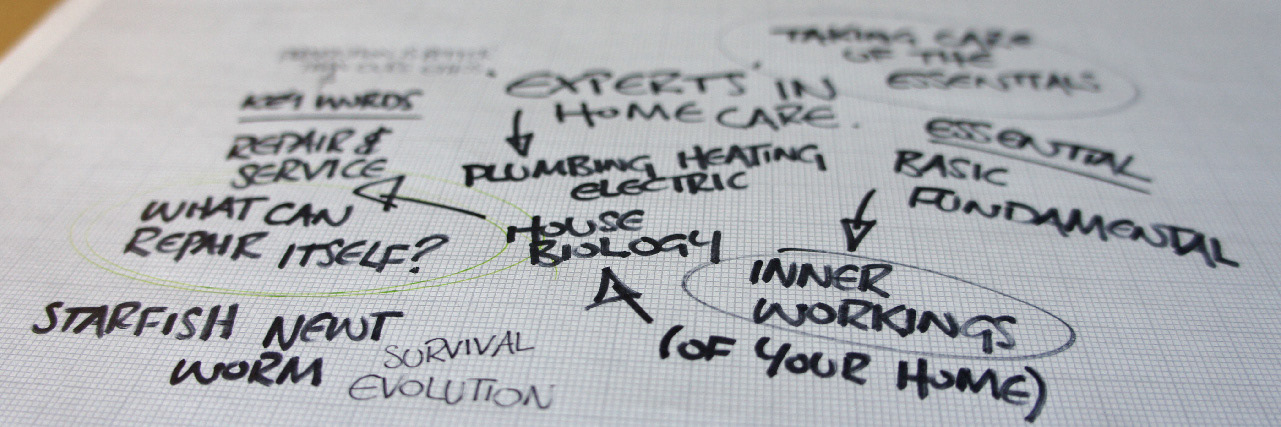 TAKING CARE
OF THE
ESSENTIALS
'EXPERTS' IN
HOME CARE.
KEY WORDS
REPAIR &
SERVICE
PLUMBING, HEATING
ELECTRIC
ESSENTIAL
BASIC
FUNDAMENTAL
WHAT CAN
REPAIR ITSELF?
HOUSE
BIOLOGY
INNER
WORKINGS
(OF YOUR HOME)
STARFISH NEWT
WORM
SURVIVAL
EVOLUTION